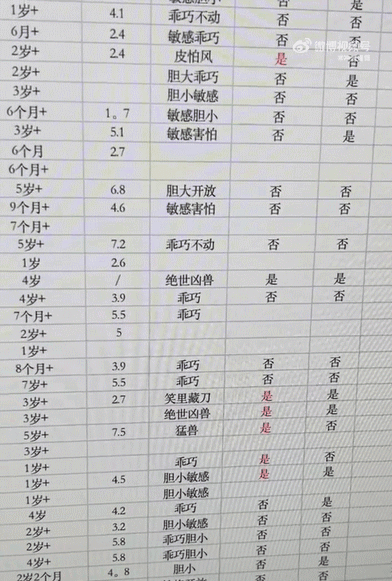 1岁+ 4.1 否 是
6月+ 2.4 乖巧不动 否 否
2岁+ 2.4 敏感乖巧 否
2岁+ 皮怕风 是 否
3岁+ 胆大乖巧 否 是
6个月+ 1。7 胆小敏感 否 否
3岁+ 5.1 敏感胆小 否 否
6个月 2.7 敏感害怕 否 是
6个月+
5岁+ 6.8 胆大开放 否 否
9个月+ 4.6 敏感害怕 否 否
7个月+
5岁+ 7.2 乖巧不动 否 否
1岁 2.6
4岁 / 绝世凶兽 是 是
4岁+ 3.9 乖巧 否 否
7个月+ 5.5 乖巧
2岁+ 5
1岁+
8个月+ 3.9 乖巧 否 否
7岁+ 5.5 乖巧 否 否
3岁+ 2.7 笑里藏刀 是 是
3岁+ 绝世凶兽 是 是
5岁+ 7.5 猛兽 是 否
3岁+
1岁+ 乖巧 是 否
1岁+ 4.5 胆小敏感 是 是
1岁+ 胆小敏感
4岁 4.2 乖巧 否 是
2岁+ 3.2 胆小敏感 否 否
2岁+ 5.8 乖巧胆小 否 否
4岁+ 5.8 乖巧胆小 否 否
2岁2个月 4。8 胆小 否 是
否 否